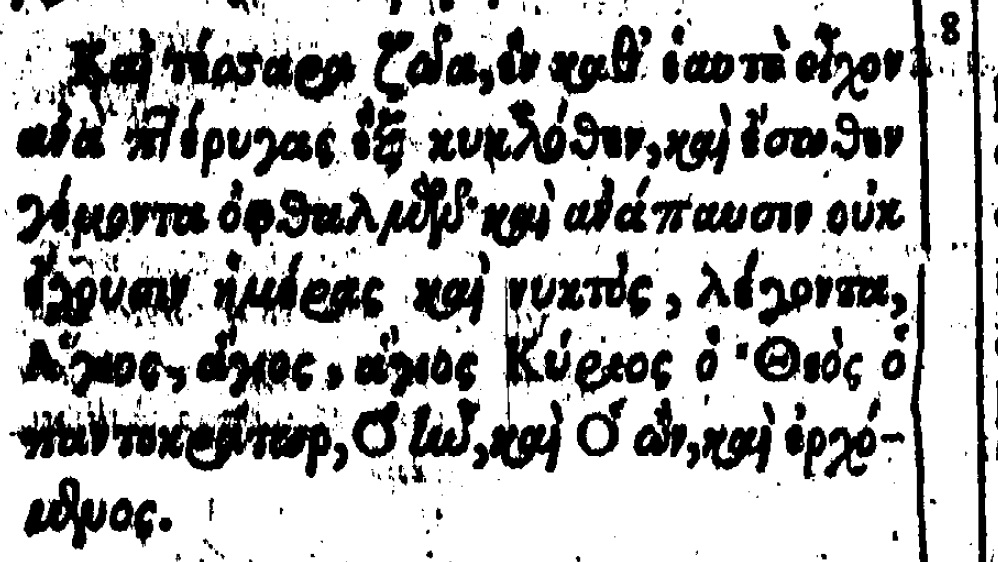 Καὶ τέσσαρα ζῶα, ἓν καθ' ἑαυτὸ εἶχον 8
ἀνὰ πτέρυγας ἓξ κυκλόθεν, καὶ ἔσωθεν
γέμοντα ὀφθαλμῶν· καὶ ἀνάπαυσιν οὐκ
ἔχουσιν ἡμέρας καὶ νυκτὸς, λέγοντα,
Ἅγιος, ἅγιος, ἅγιος Κύριος ὁ Θεὸς ὁ
παντοκράτωρ, Ὁ ἦν, καὶ Ὁ ὢν, καὶ ἐρχό-
μενος.